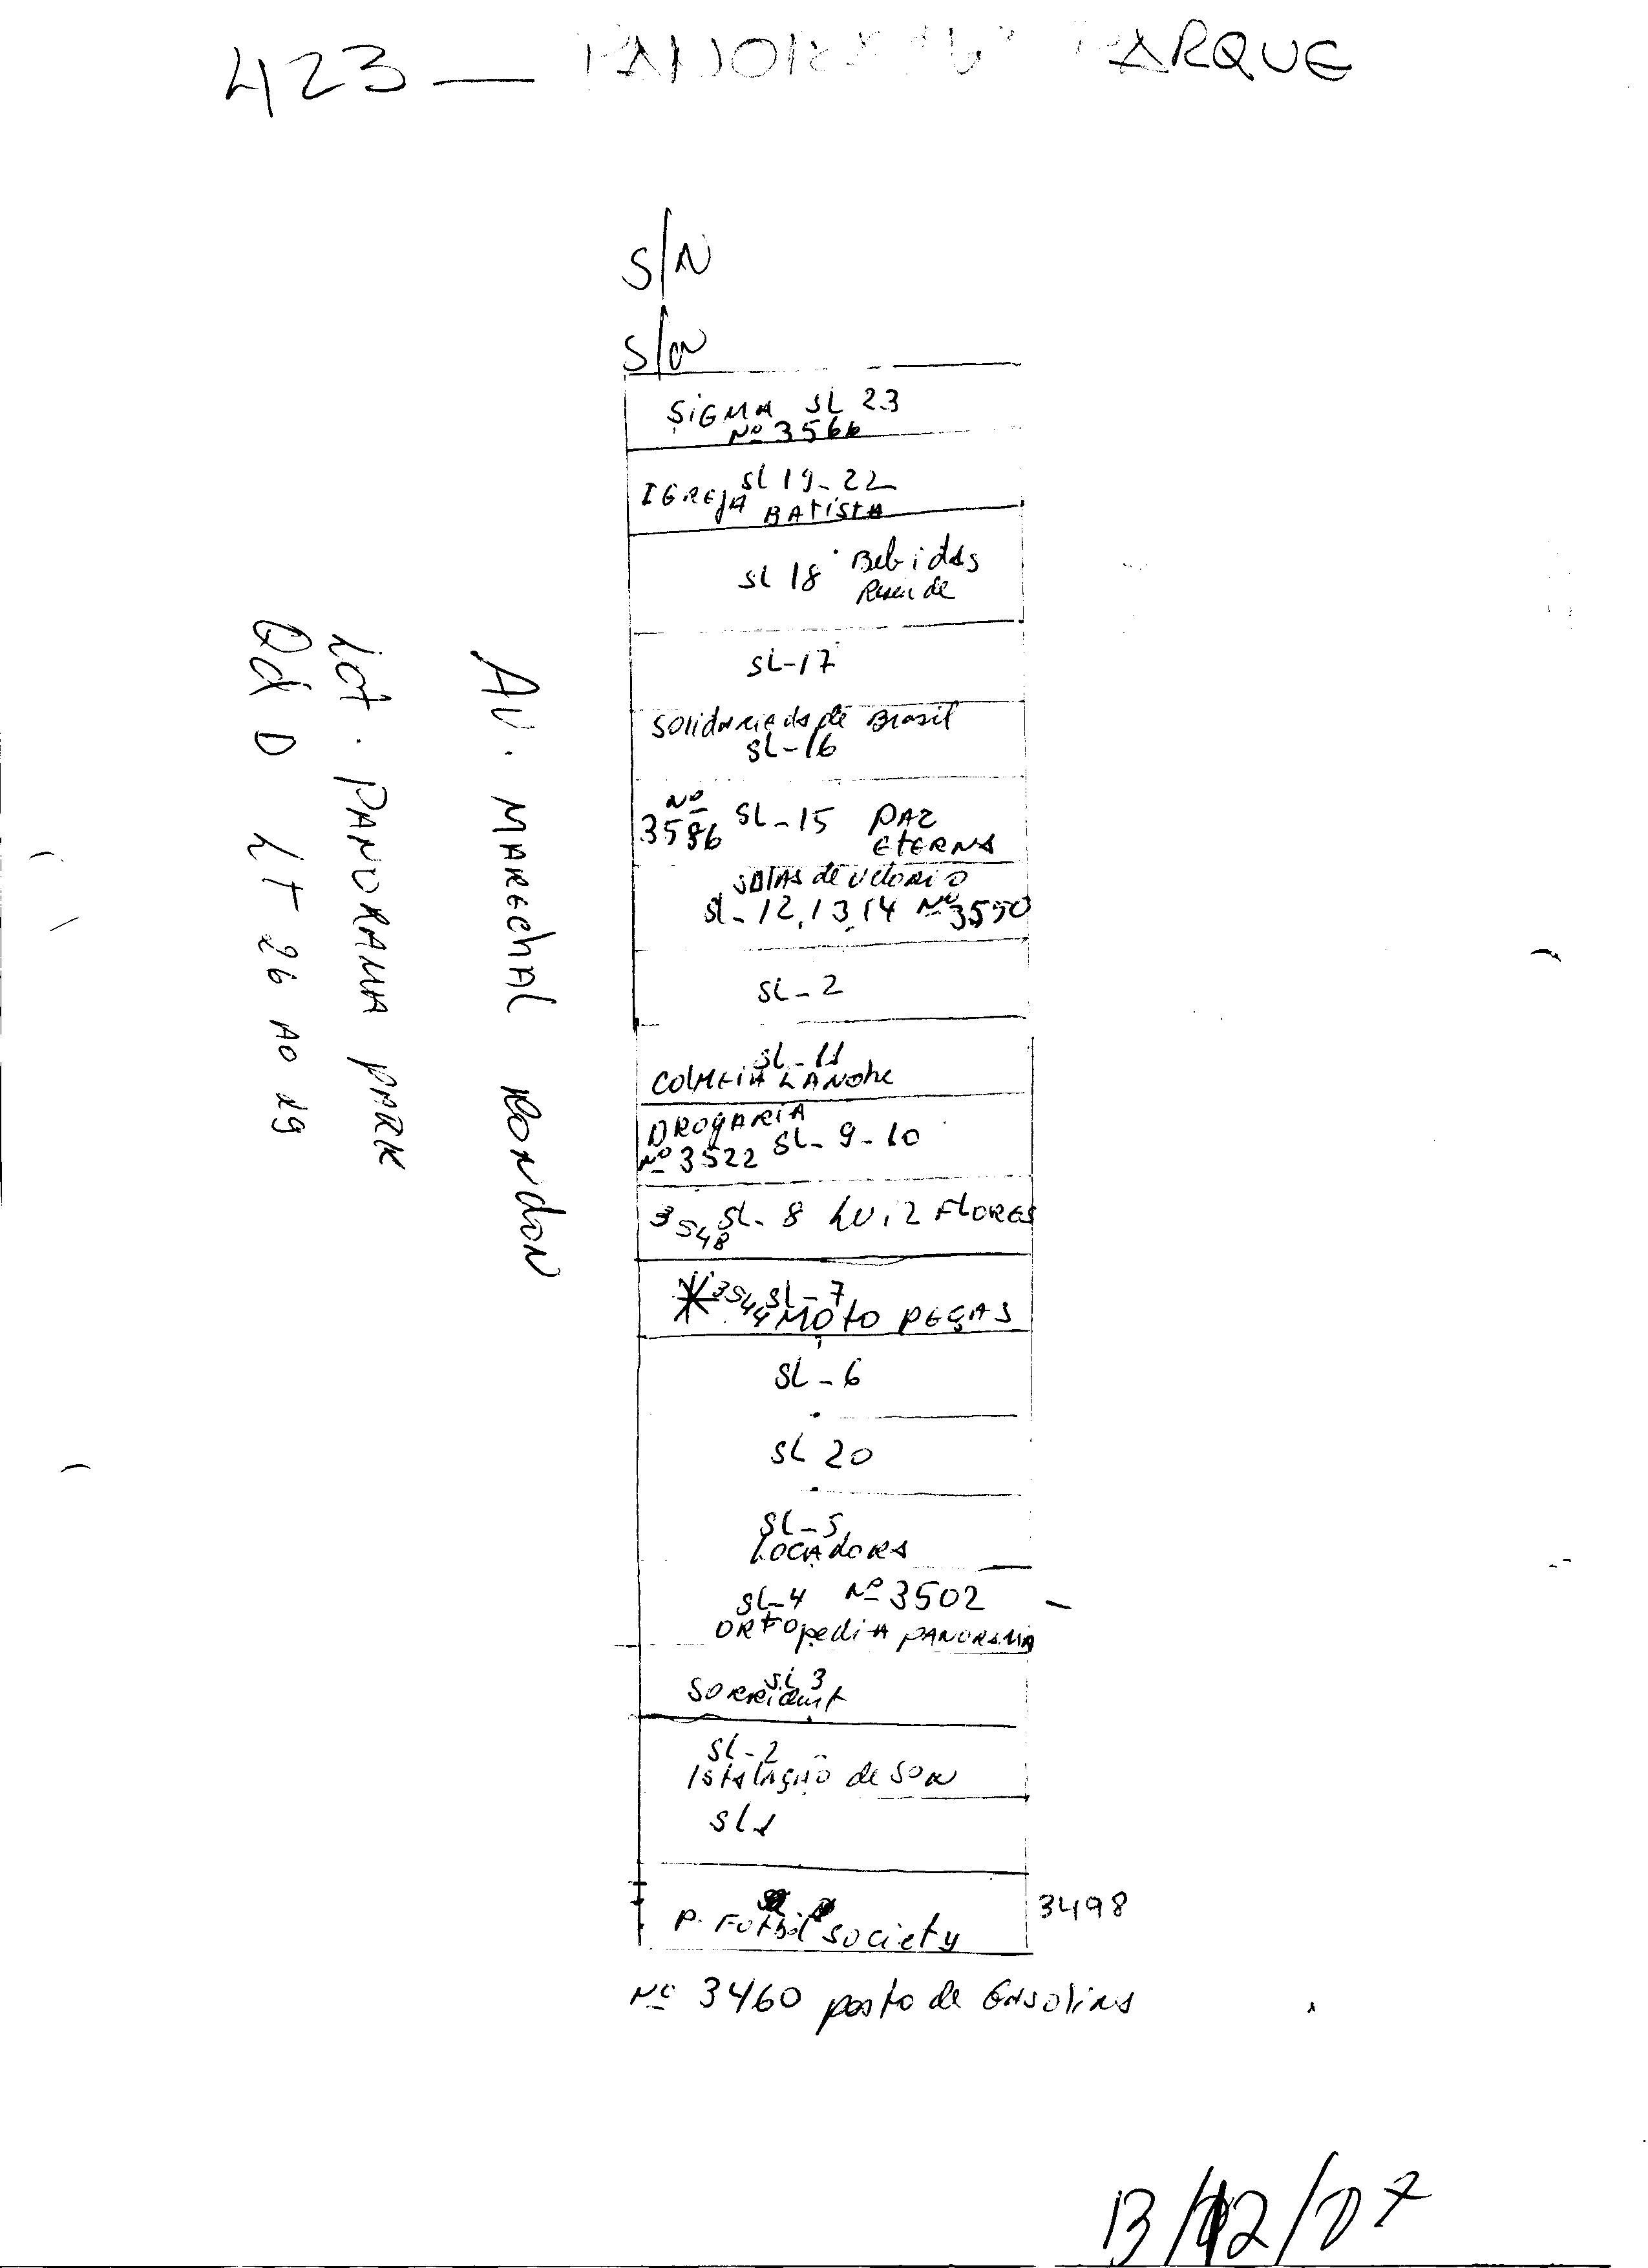 423 — PANORAMA PARQUE
S/N
S/N
SIGMA SL 23
Nº 3566
SL 19-22
IGREJA BATISTA
SL 18 Bebidas
SL-17
Solidariedade Brasil
SL-16
Nº 3586 SL-15 PAZ ETERNA
SALAS de Velorio
SL-12,13,14 Nº 3550
SL-2
SL-11
COLMEIA LANCHE
DROGARIA
Nº 3522 SL-9-10
3548 SL-8 LUIZ FLORES
3544 SL-7
MOTO PEÇAS
SL-6
SL 20
SL-5
LOCADORA
SL-4 Nº 3502
ORTOpediA PANORAMA
SL 3
SORRIdent
SL-2
IstALAÇÃO de SOM
SL1
P. Futbil society 3498
Nº 3460 posto de Gasolina
AV. MARECHAL RONDON
Lot. PANORAMA PARK
Qd D LT 26 AO 29
13/12/07